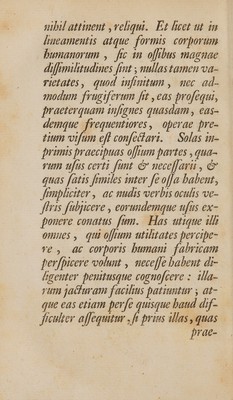 nihil attinent, reliqui. Et licet ut in
lineamentis atque formis corporum
humanorum, ſic in oſſibus magnae
diſſimilitudines ſint; nullas tamen va-
rietates, quod infinitum, nec ad-
modum frugiferum ſit, eas proſequi,
praeterquam inſignes quasdam, eas-
demque frequentiores, operae pre-
tium viſum eſt conſectari. Solas in-
primis praecipuas oſſium partes, qua-
rum uſus certi ſunt & neceſſarii, &
quas ſatis ſimiles inter ſe oſſa habent,
ſimpliciter, ac nudis verbis oculis ve-
ſtris ſubjicere, eorundemque uſus ex-
ponere conatus ſum. Has utique illi
omnes, qui oſſium utilitates percipe-
re, ac corporis humani fabricam
perſpicere volunt, neceſſe habent di-
ligenter penitusque cognoſcere: illa-
rum jacturam facilius patiuntur; at-
que eas etiam per ſe quisque haud dif-
ficulter aſſequitur, ſi prius illas, quas
prae-